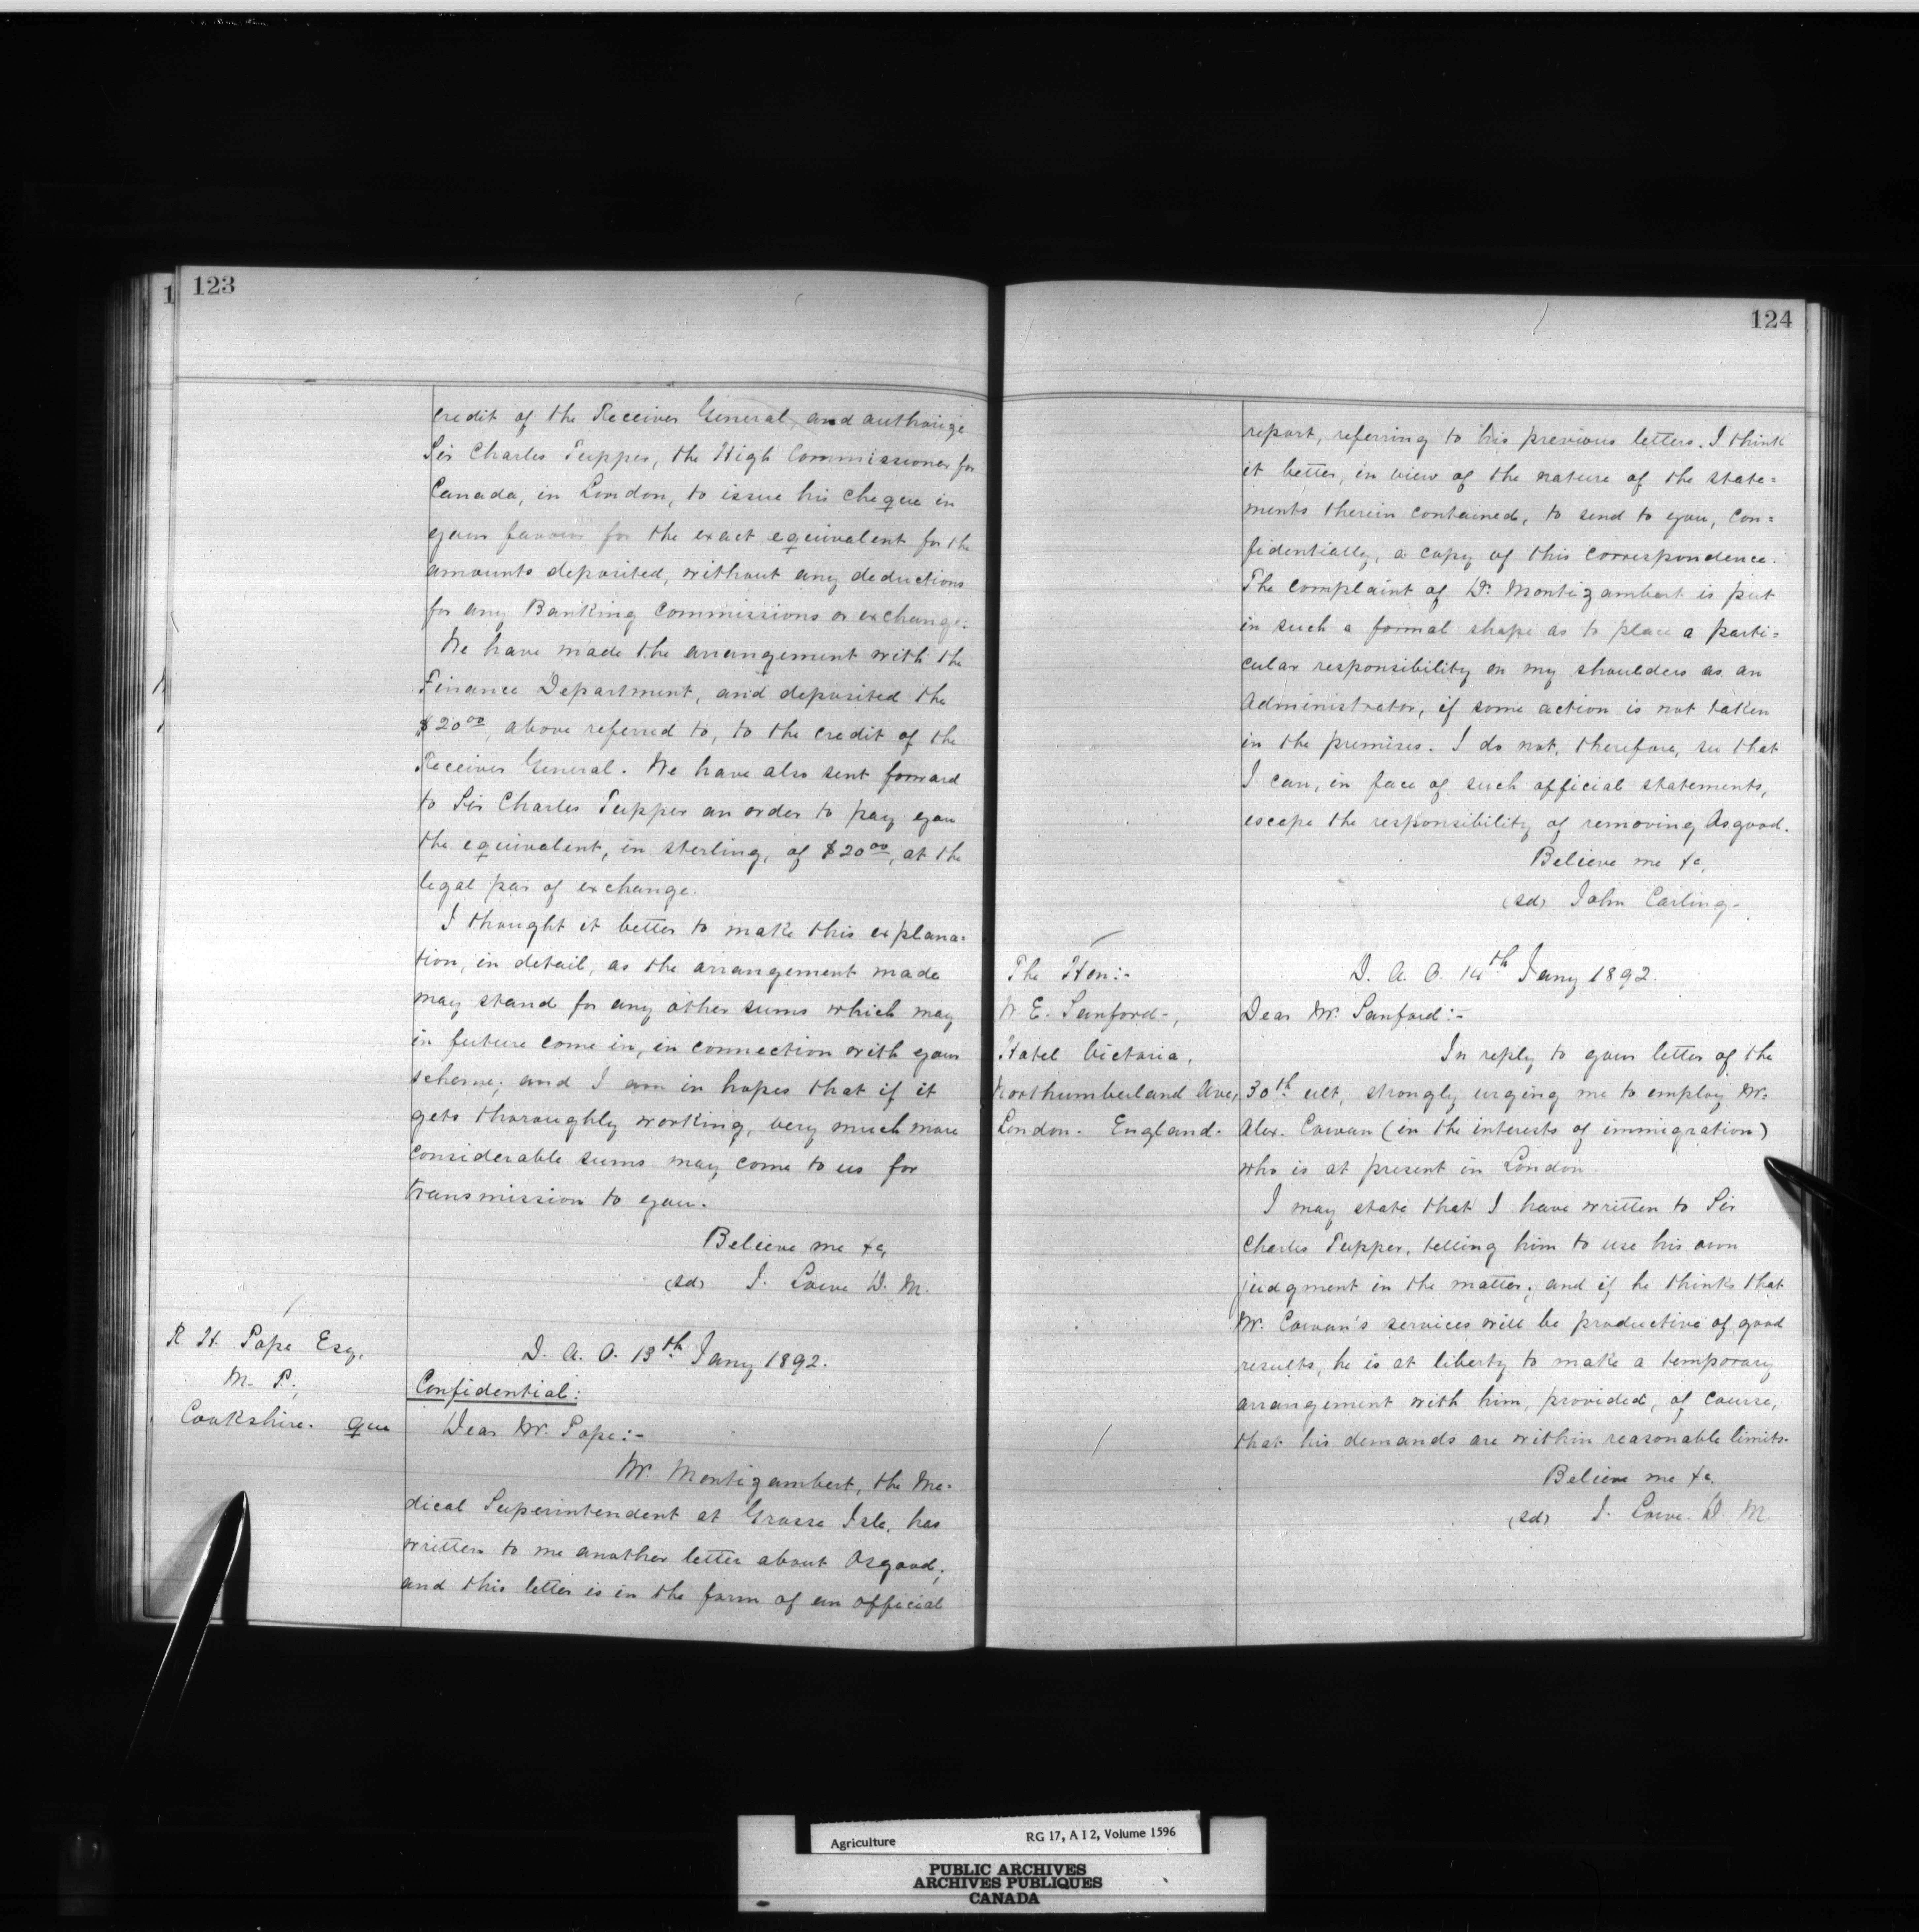 123
credit of the Receiver General, and authorize
Sir Charles Tupper, the High Commissioner for
Canada, in London, to issue his cheque in
your favour for the exact equivalent for the
amounts deposited, without any deductions
for any Banking Commissions or exchange.
We have made the arrangement with the
Finance Department, and deposited the
$20 00, above referred to, to the credit of the
Receiver General. We have also sent forward
to Sir Charles Tupper an order to pay you
the equivalent, in sterling, of $20 00, at the
legal par of exchange.
I thought it better to make this explana=
tion, in detail, as the arrangement made
may stand for any other sums which may
in future come in, in connection with your
scheme; and I am in hopes that if it
gets thoroughly working, very much more
considerable sums may come to us for
transmission to you.
Believe me &c,
(sd) J. Lowe D. M.
R. H. Pope Esq,
M. P.,
Cookshire. Que
D. A. O. 13th Jany 1892.
Confidential:
Dear Mr. Pope:-
Mr. Montizambert, the Me-
dical Superintendent at Grosse Isle, has
written to me another letter about Osgood;
and this letter is in the form of an official
124
report, referring to his previous letters. I think
it better, in view of the nature of the state=
ments therein contained, to send to you, con=
fidentially, a copy of this correspondence.
The complaint of Dr. Montizambert is put
in such a formal shape as to place a parti=
cular responsibility on my shoulders as an
Administrator, if some action is not taken
in the premises. I do not, therefore, see that
I can, in face of such official statements,
escape the responsibility of removing Osgood.
Believe me &c,
(sd) John Carling.
The Hon:-
W. E. Sanford-,
Hotel Victoria,
Northumberland Ave,
London. England.
D. A. O. 14th Jany 1892.
Dear Mr. Sanford:-
In reply to your letter of the
30th ult, strongly urging me to employ Mr.
Alex. Cowan (in the interests of immigration)
who is at present in London.
I may state that I have written to Sir
Charles Tupper, telling him to use his own
judgment in the matter; and if he thinks that
Mr. Cowan's services will be productive of good
results, he is at liberty to make a temporary
arrangement with him, provided, of course,
that his demands are within reasonable limits.
Believe me &c,
(sd) J. Lowe. D. M.
Agriculture RG 17, A I 2, Volume 1596
PUBLIC ARCHIVES
ARCHIVES PUBLIQUES
CANADA